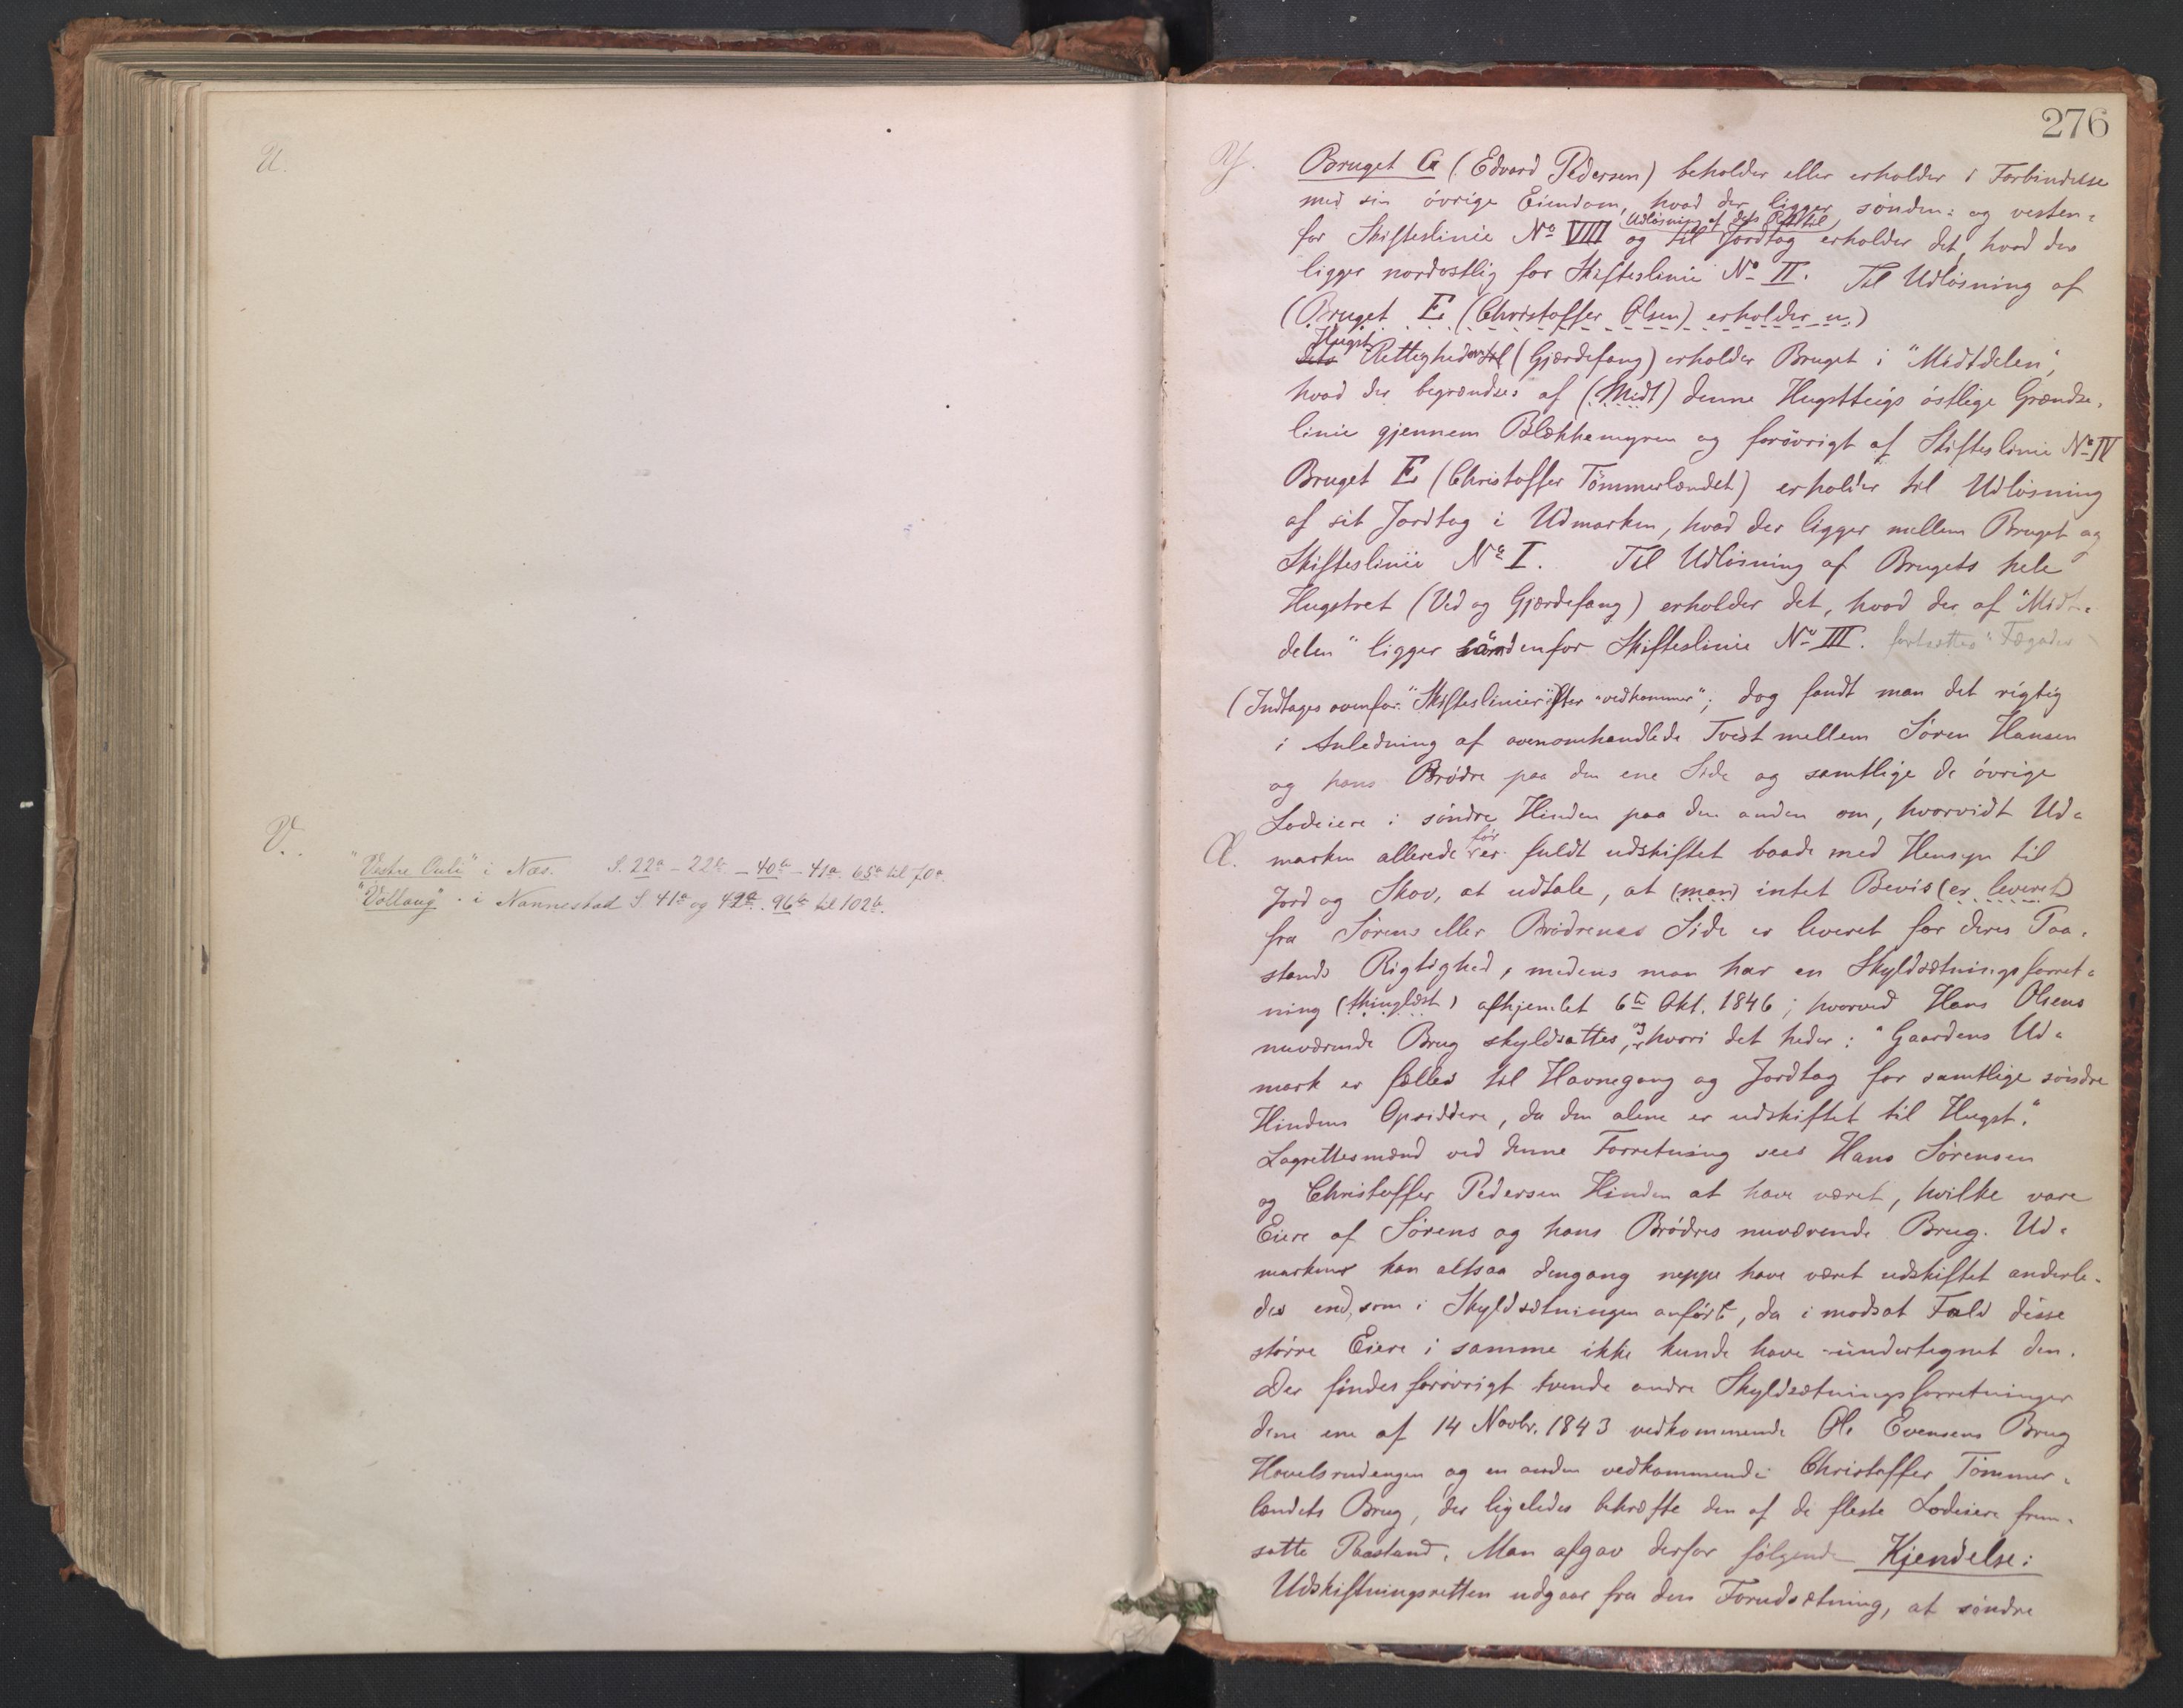 U.
V.
"Vestre Ouli" i Næs. S. 22a – 22b – 40b – 41a. 65a til 70a.
"Vollaug" i Nannestad S. 41a og 42a. 96b til 102b.
276
Bruget G (Edvard Pedersen) beholder eller erholder i Forbindelse
med sin övrige Eiendom, hvad der ligger sönden- og vesten-
for Skifteslinie No VIII og til Udlösning af dets Ret til Jordtag erholder det, hvad der
ligger nordostlig for Skifteslinie No II. Til Udlösning af
(Bruget E (Christoffer Olsen) erholder u.)
dets Hugst Rettigheder til (Gjærdefang) erholder Bruget i "Midtdelen",
hvad der begrændses af (Midt) denne Hugstteigs östlige Grændse-
linie gjennem Blækkemyren og forövrigt af Skifteslinie No IV
Bruget E (Christoffer Tömmerlandet) erholder til Udlösning
af sit Jordtag i Udmarken, hvad der ligger mellem Bruget og
Skifteslinie No I. Til Udlösning af Brugets hele
Hugstret (Ved og Gjærdefang) erholder det, hvad der af "Midt-
delen" ligger söndenfor Skifteslinie No III. fortsættes
(Indtages ovenfor "Skifteslinier" efter "vedkommer"; dog fandt man det rigtig
i Anledning af ovenomhandlede Tvist mellem Sören Hansen
og hans Brödre paa den ene Side og samtlige de övrige
Lodeiere i söndre Hinden paa den anden om, hvorvidt Ud-
marken allerede för er fuldt udskiftet baade med Hensyn til
Jord og Skov, at udtale, at (man) intet Bevis (er leveret)
fra Sörens eller Brödrenes Side er leveret for deres Paa-
stands Rigtighed, medens man har en Skyldsætningsforret-
ning (thinglæst) afhjemlet 6te Okt. 1846, hvorved Hans Olsens
nuværende Brug skyldsattes, og hvori det heder: "Gaardens Ud-
mark er fælles til Havnegang og Jordtag for samtlige söndre
Hindens Opsiddere, da den alene er udskiftet til Hugst."
Lagrettesmænd ved denne Forretning sees Hans Sörensen
og Christoffer Pedersen Hinden at have været, hvilke vare
Eiere af Sörens og hans Brödres nuværende Brug. Ud-
marken kan altsaa dengang neppe have været udskiftet anderle-
des end, som i Skyldsætningen anfört, da i modsat Fald disse
större Eiere i samme ikke kunde have undertegnet den.
Der findes forövrigt tvende andre Skyldsætningsforretninger
den ene af 14 Novbr. 1843 vedkommende Ole Evensens Brug
Hovelsrudengen og en anden vedkommende Christoffer Tömmer-
landets Brug, der ligeledes bekræfte den af de fleste Lodeiere frem-
satte Paastand. Man afgav derfor fölgende Kjendelse:
Udskiftningsretten udgaar fra den Forudsætning, at söndre